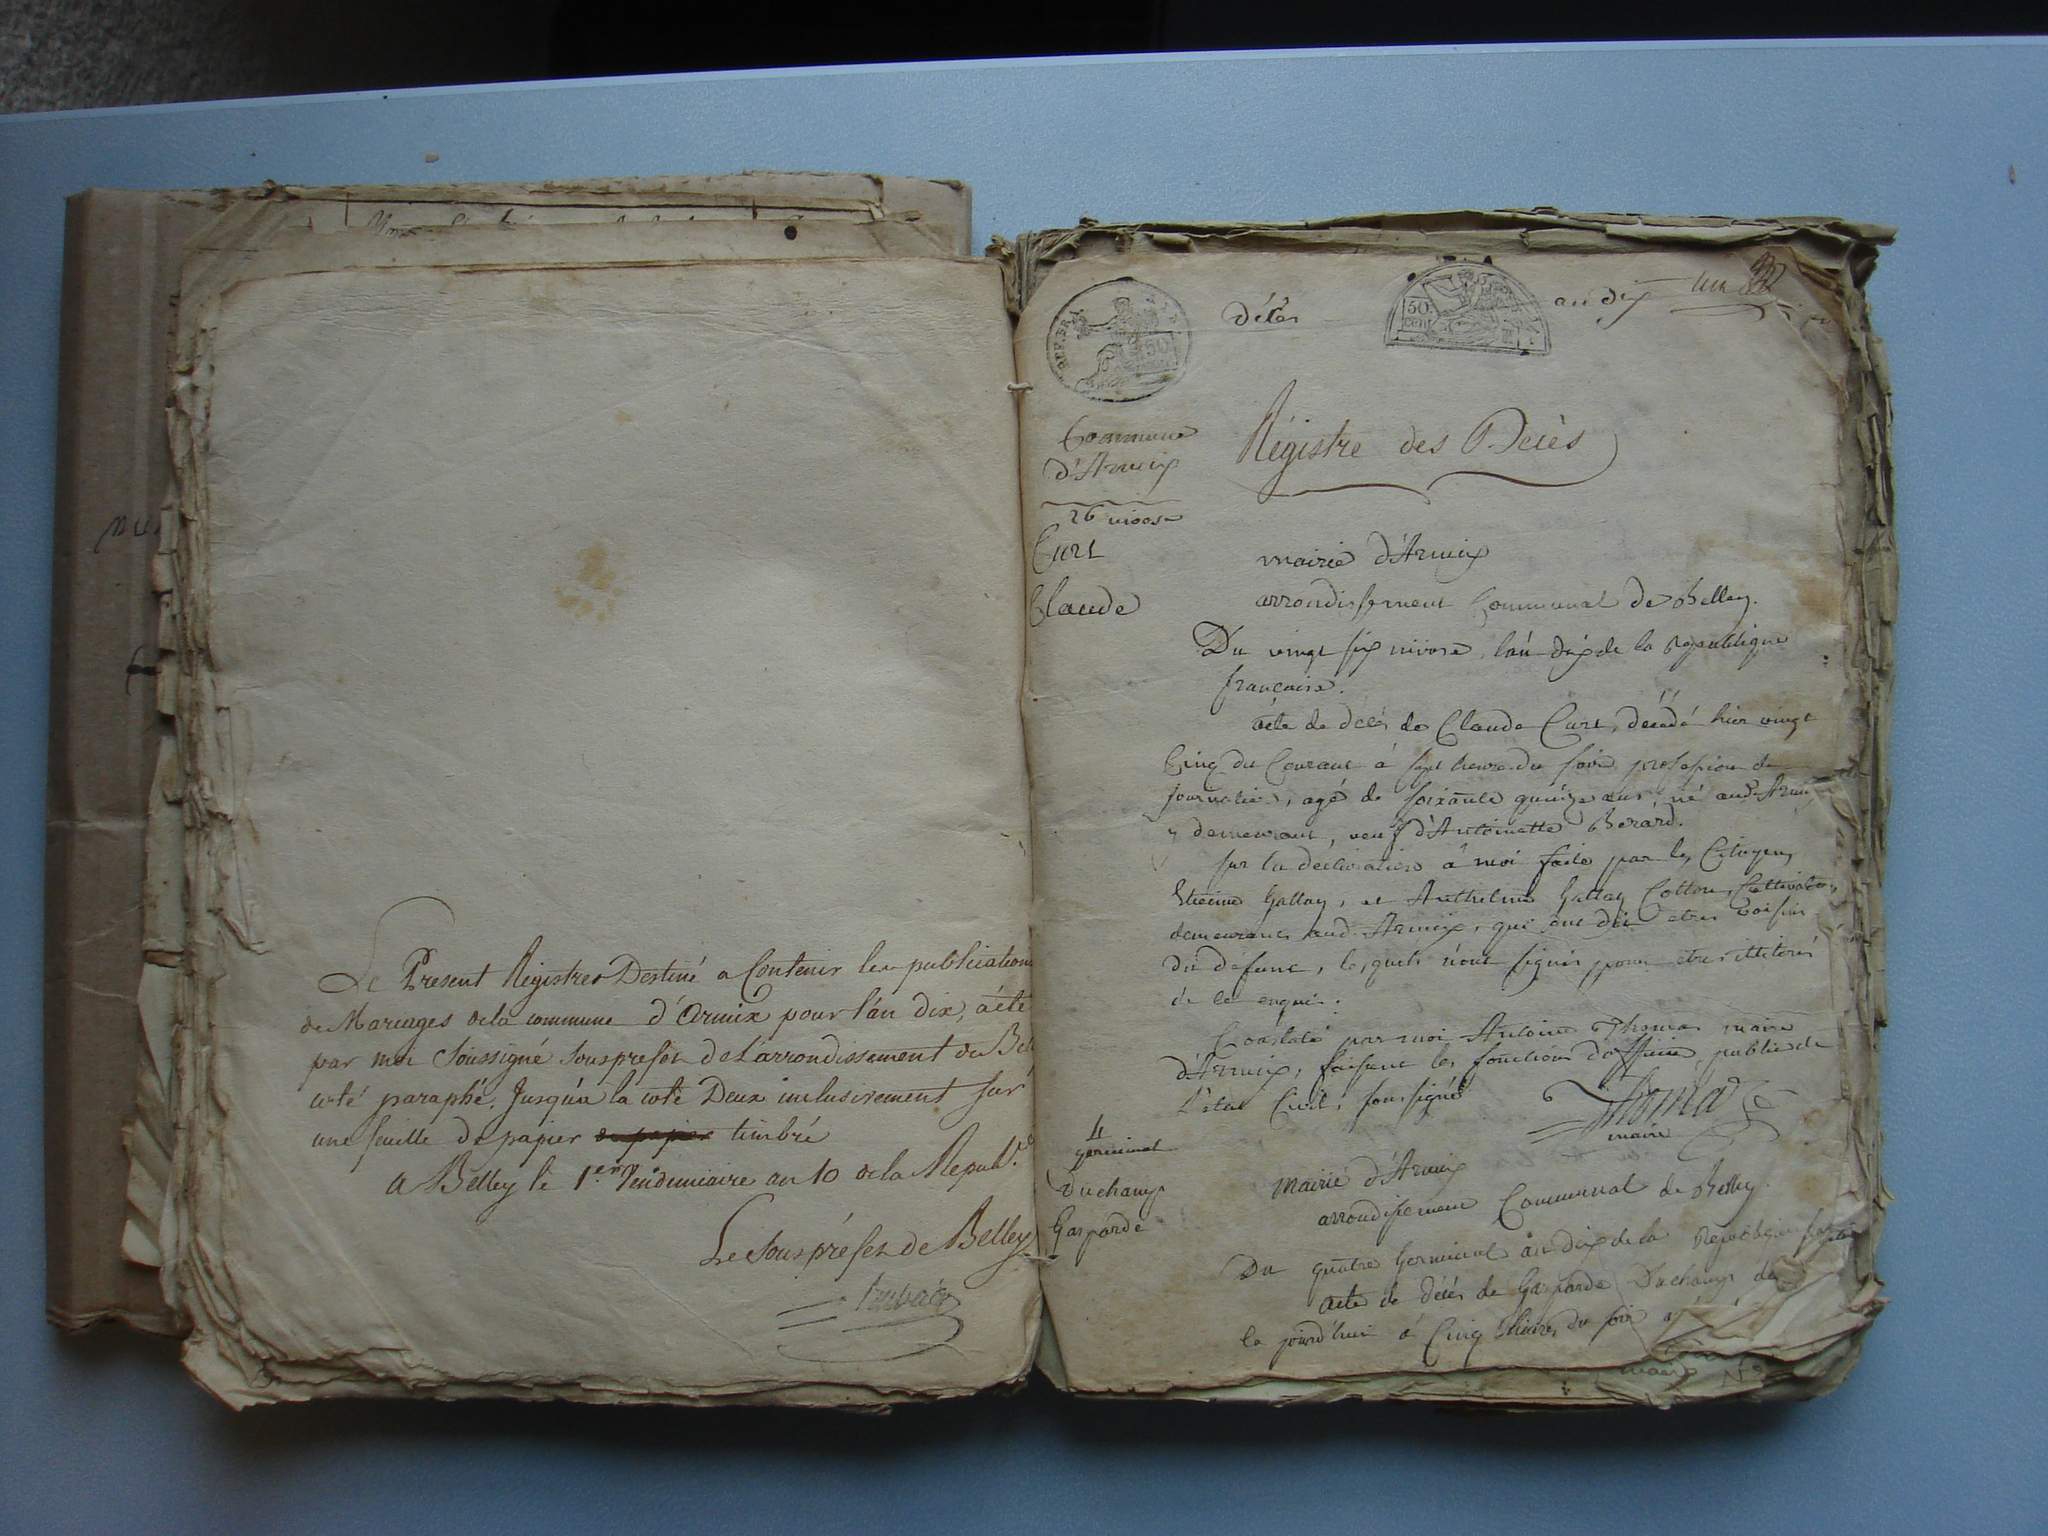 Le Present Régistre Destiné a Contenir les publications
de Mariages de la commune d'Armix pour l'an dix, a été
par moi Soussigné Souspréfet de L'arrondissement de Bel
coté paraphé, Jusqu'a la cote Deux inclusivement sur
une feuille de papier timbré
a Belley le 1er Vendemiaire an 10 de la Republ.
Le Souspréfet de Belley
REP. FRA.
50
décès
50
cent
an dix
un
Commune
d'Armix
Régistre des Décès
26 nivose
Curt
Claude
mairie d'Armix
arrondissement Communal de Belley.
Du vingt six nivose, l'an dix de la République
française.
acte de décès de Claude Curt, décédé hier vingt
Cinq du Courant à sept heures du soir profession de
journalier, agé de soixante quinze ans, né aud. Armix
y demeurant, veuf d'Antoinette Berard.
sur la déclaration à moi faite par les Citoyens
Etienne Gallay, et Anthelme Gallay Cotton, Cultivateurs
demeurant aud. Armix, qui ont dit etres voisins
du défunt, lesquels n'ont signés pour etres illiterés
de ce enquis.
Constaté par moi Antoine Thomas maire
d'Armix, faisant les fonctions d'officier public de
l'état Civil, soussigné
Thomas
maire
4
germinal
Duchamp
Gasparde
Mairie d'Armix
arrondissement Communal de Belley.
Du quatre Germinal an dix de la République française
acte de décès de Gasparde Duchamp
jourd'hui à Cinq heures du soir